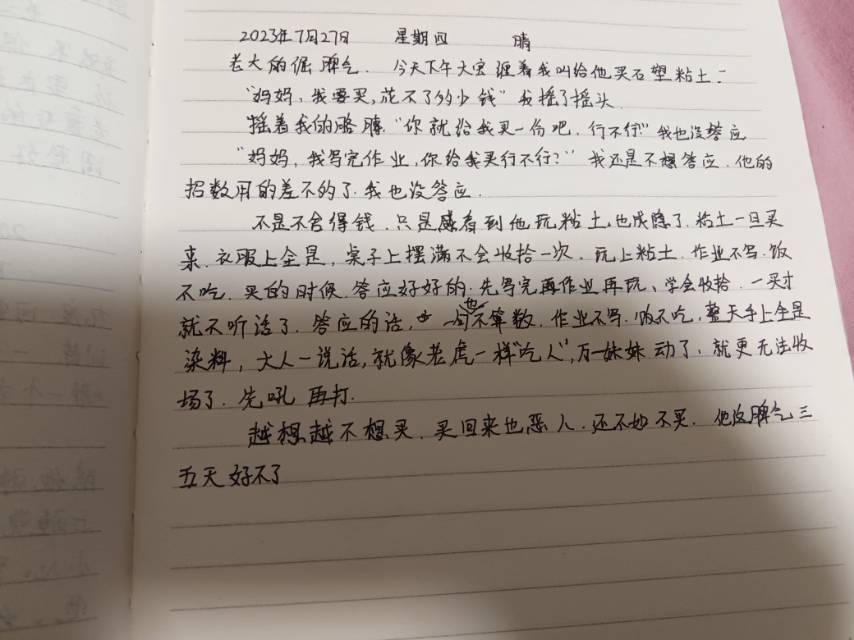 2023年7月27日 星期四 晴
老大的倔脾气. 今天下午大宝缠着我叫给他买石塑粘土:
"妈妈, 我要买, 花不了多少钱" 我摇了摇头.
摇着我的胳膊. "你就给我买一份吧. 行不行" 我也没答应
"妈妈, 我写完作业, 你给我买行不行?" 我还是不想答应. 他的
招数用的差不的了. 我也没答应.
不是不舍得钱. 只是感看到他玩粘土. 也成瘾了. 粘土一旦买
来. 衣服上全是, 桌子上摆满不会收拾一次. 玩上粘土. 作业不写. 饭
不吃. 买的时候. 答应好好的. 先写完再作业再玩、学会收拾. 一买才
就不听话了. 答应的话, 一句也不算数. 作业不写. 饭不吃, 整天手上全是
染料, 大人一说话, 就像老虎一样"吃人", 万一妹妹动了, 就更无法收
场了. 先吼 再打.
越想越不想买. 买回来也恶人. 还不如不买. 他这脾气三
五天好不了